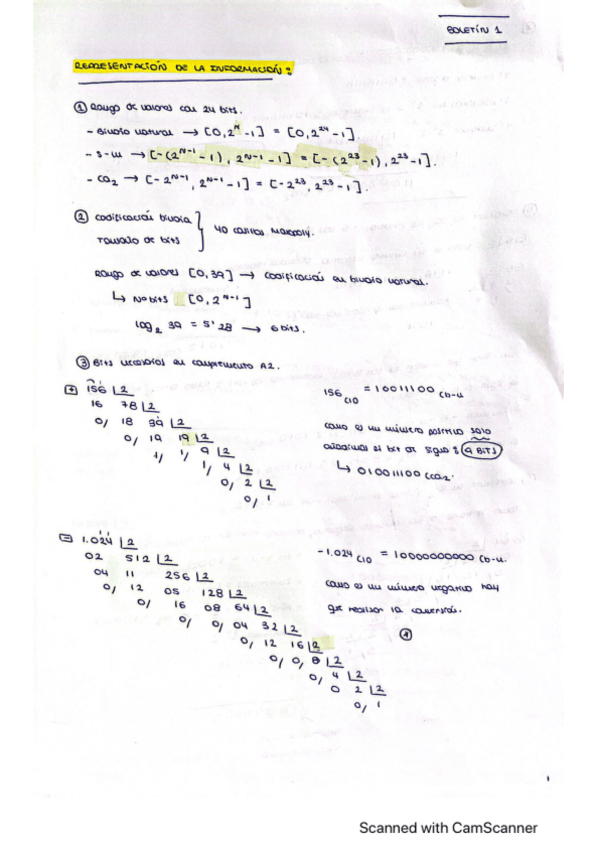 BOLETÍN 1
REPRESENTACIÓN DE LA INFORMACIÓN:
① Rango de valores con 24 bits.
- Binario natural → [0, 2^N - 1] = [0, 2^24 - 1].
- S-M → [-(2^N-1 - 1), 2^N-1 - 1] = [-(2^23 - 1), 2^23 - 1].
- CA2 → [-2^N-1, 2^N-1 - 1] = [-2^23, 2^23 - 1].
② Codificación binaria
Tamaño de bits } 40 cartas
Rango de valores [0, 39] → Codificación en binario natural.
↳ Nº bits [0, 2^N-1]
log2 39 = 5'28 → 6 bits.
③ Bits necesarios en complemento A2.
+ 156 |2
16 78 |2
0/ 18 39 |2
0/ 19 19 |2
1/ 1/ 9 |2
1/ 4 |2
0/ 2 |2
0/ 1
156 C10 = 10011100 Cb-n
como es un número positivo solo
añadimos el bit de signo : 9 BITS
↳ 010011100 CCA2.
- 1.024 |2
02 512 |2
04 11 256 |2
0/ 12 05 128 |2
0/ 16 08 64 |2
0/ 0/ 04 32 |2
0/ 12 16 |2
0/ 0/ 8 |2
0/ 4 |2
0 2 |2
0/ 1
-1.024 C10 = 10000000000 Cb-n.
como es un número negativo hay
que realizar la conversión.
1
Scanned with CamScanner